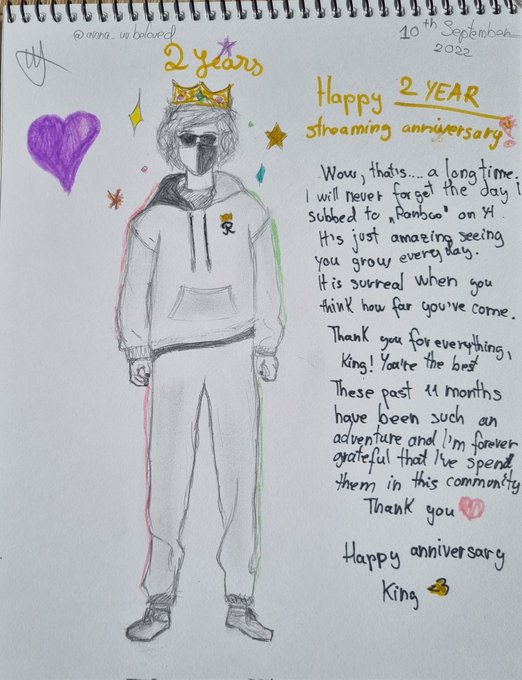 @anna_un.beloved
10th September
2022
2 years
Happy 2 YEAR
streaming anniversary
R
Wow, that's.... a long time.
I will never forget the day I
subbed to „Ranboo" on YT.
It's just amazing seeing
you grow everyday.
It is surreal when you
think how far you've come.
Thank you for everything,
King! You're the best
These past 11 months
have been such an
adventure and I'm forever
grateful that I've spend
them in this community
Thank you
Happy anniversary
King